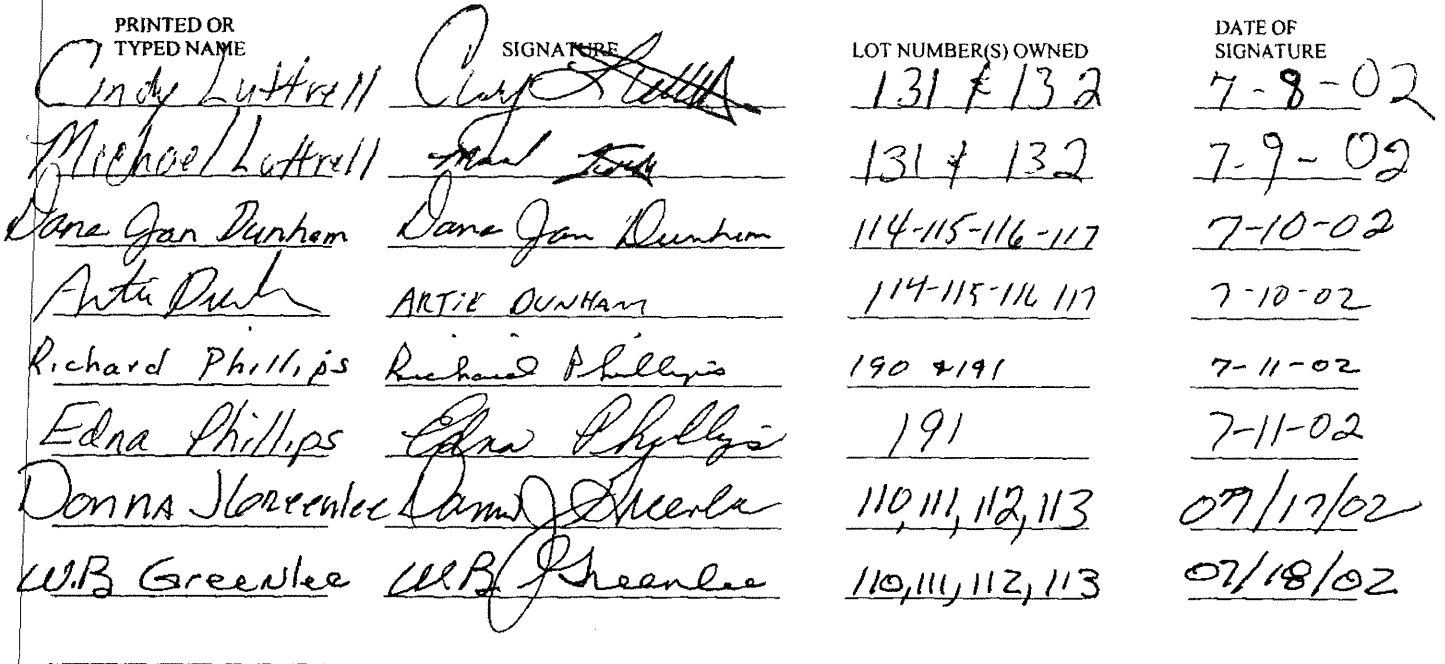 PRINTED OR TYPED NAME SIGNATURE LOT NUMBER(S) OWNED DATE OF SIGNATURE
Cindy Luttrell 131 & 132 7-8-02
Michael Luttrell 131 & 132 7-9-02
Dana Jan Dunham Dana Jan Dunham 114-115-116-117 7-10-02
Artie Dunham ARTIE DUNHAM 114-115-116 117 7-10-02
Richard Phillips Richard Phillips 190 & 191 7-11-02
Edna Phillips Edna Phillips 191 7-11-02
Donna J Greenlee Donna J Greenlee 110,111,112,113 07/17/02
W.B Greenlee W.B Greenlee 110,111,112,113 07/18/02